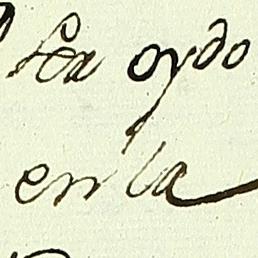 sea oydo
en la